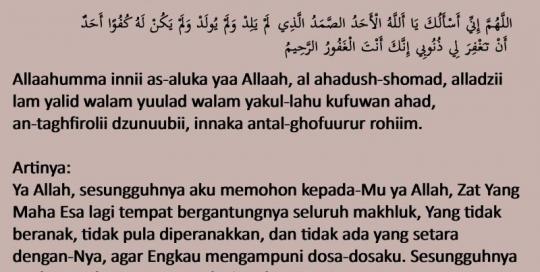 اللَّهُمَّ إِنِّي أَسْأَلُكَ يَا أَللَّهُ الْأَحَدُ الصَّمَدُ الَّذِي لَمْ يَلِدْ وَلَمْ يُولَدْ وَلَمْ يَكُنْ لَهُ كُفُوًا أَحَدٌ
أَنْ تَغْفِرَ لِي ذُنُوبِي إِنَّكَ أَنْتَ الْغَفُورُ الرَّحِيمُ
Allaahumma innii as-aluka yaa Allaah, al ahadush-shomad, alladzii
lam yalid walam yuulad walam yakul-lahu kufuwan ahad,
an-taghfirolii dzunuubii, innaka antal-ghofuurur rohiim.
Artinya:
Ya Allah, sesungguhnya aku memohon kepada-Mu ya Allah, Zat Yang
Maha Esa lagi tempat bergantungnya seluruh makhluk, Yang tidak
beranak, tidak pula diperanakkan, dan tidak ada yang setara
dengan-Nya, agar Engkau mengampuni dosa-dosaku. Sesungguhnya